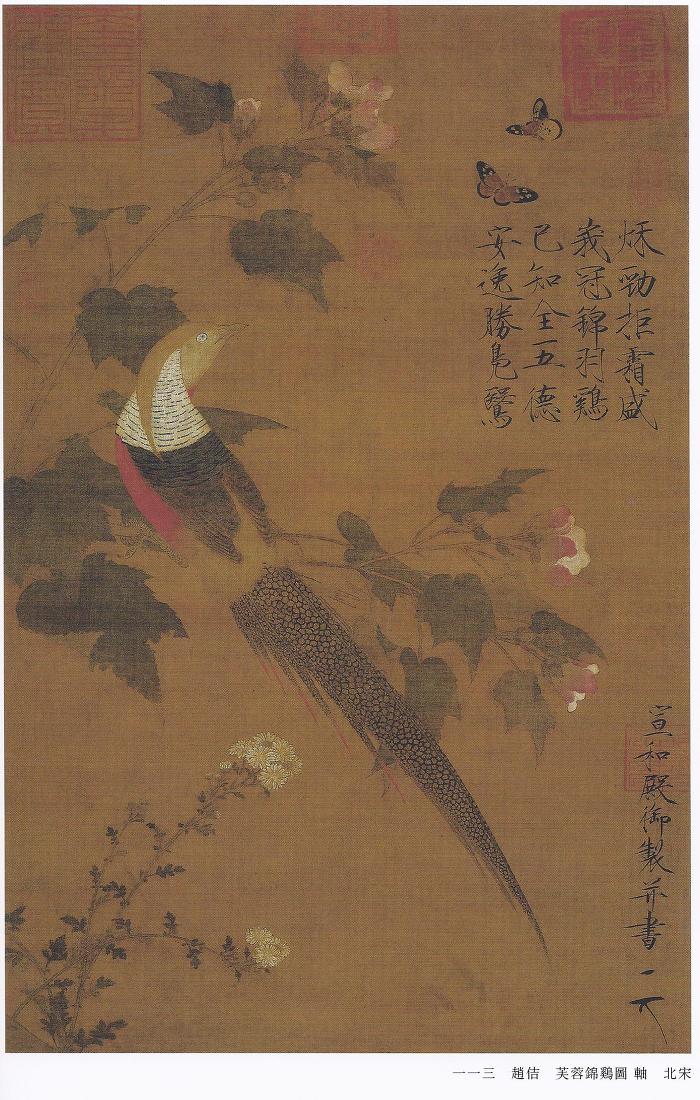 秋勁拒霜盛
峩冠錦羽鷄
已知全五德
安逸勝鳧鷖
宣和殿御製并書
一一三 趙佶 芙蓉錦鷄圖 軸 北宋